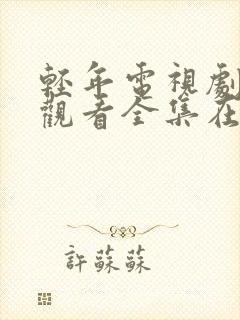 輕年電視劇
觀看全集在
許蘇蘇